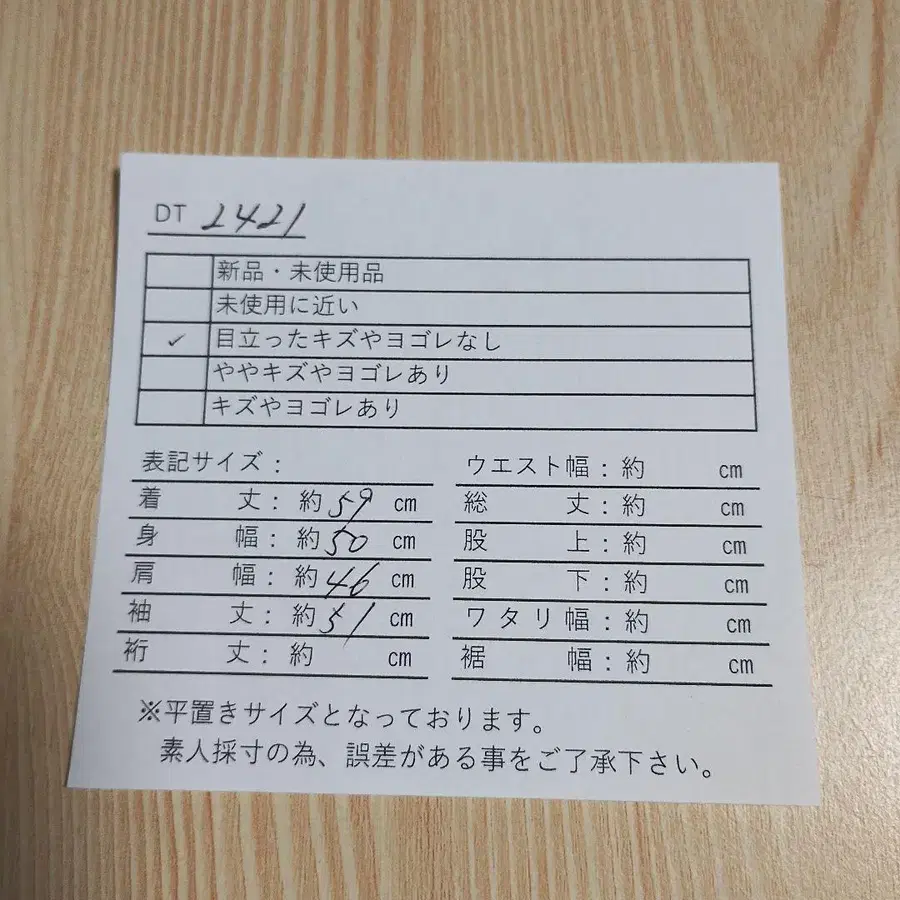 DT 2421
新品・未使用品
未使用に近い
✓ 目立ったキズやヨゴレなし
ややキズやヨゴレあり
キズやヨゴレあり
表記サイズ:
着丈:約59cm
身幅:約50cm
肩幅:約46cm
袖丈:約51cm
裄丈:約 cm
ウエスト幅:約 cm
総丈:約 cm
股上:約 cm
股下:約 cm
ワタリ幅:約 cm
裾幅:約 cm
※平置きサイズとなっております。
素人採寸の為、誤差がある事をご了承下さい。